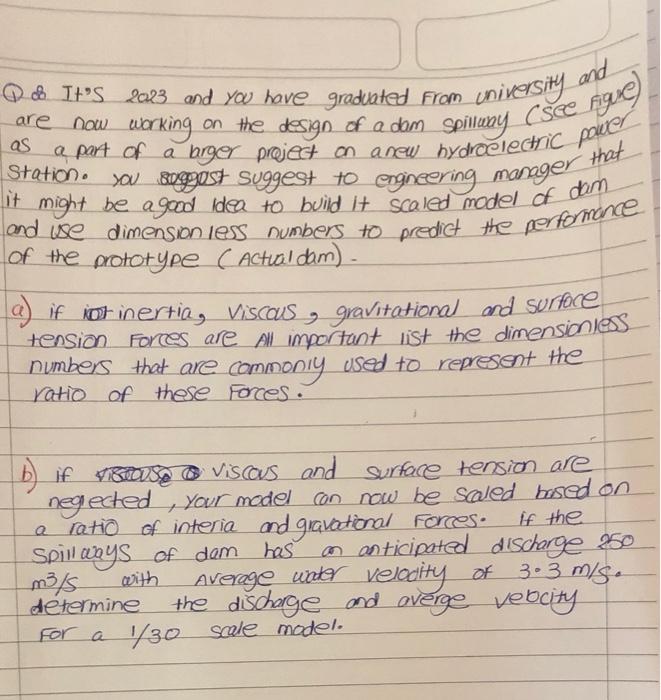 Q8 It's 2023 and you have graduated From university and
are now working on the design of a dam spillway (see Figure)
as a part of a larger project on a new hydroelectric power
Station. you suggest to engneering manager that
it might be a good idea to build it scaled model of dam
and use dimensionless numbers to predict the performance
of the prototype (Actual dam).
a) if inertia, viscous, gravitational and surface
tension Forces are All important list the dimensionless
numbers that are commonly used to represent the
ratio of these Forces.
b) if viscous and surface tension are
neglected, your model can now be scaled based on
a ratio of interia and gravational Forces. if the
Spillways of dam has an anticipated discharge 250
m³/s with Average water velocity of 3.3 m/s.
determine the discharge and averge velocity
For a 1/30 scale model.